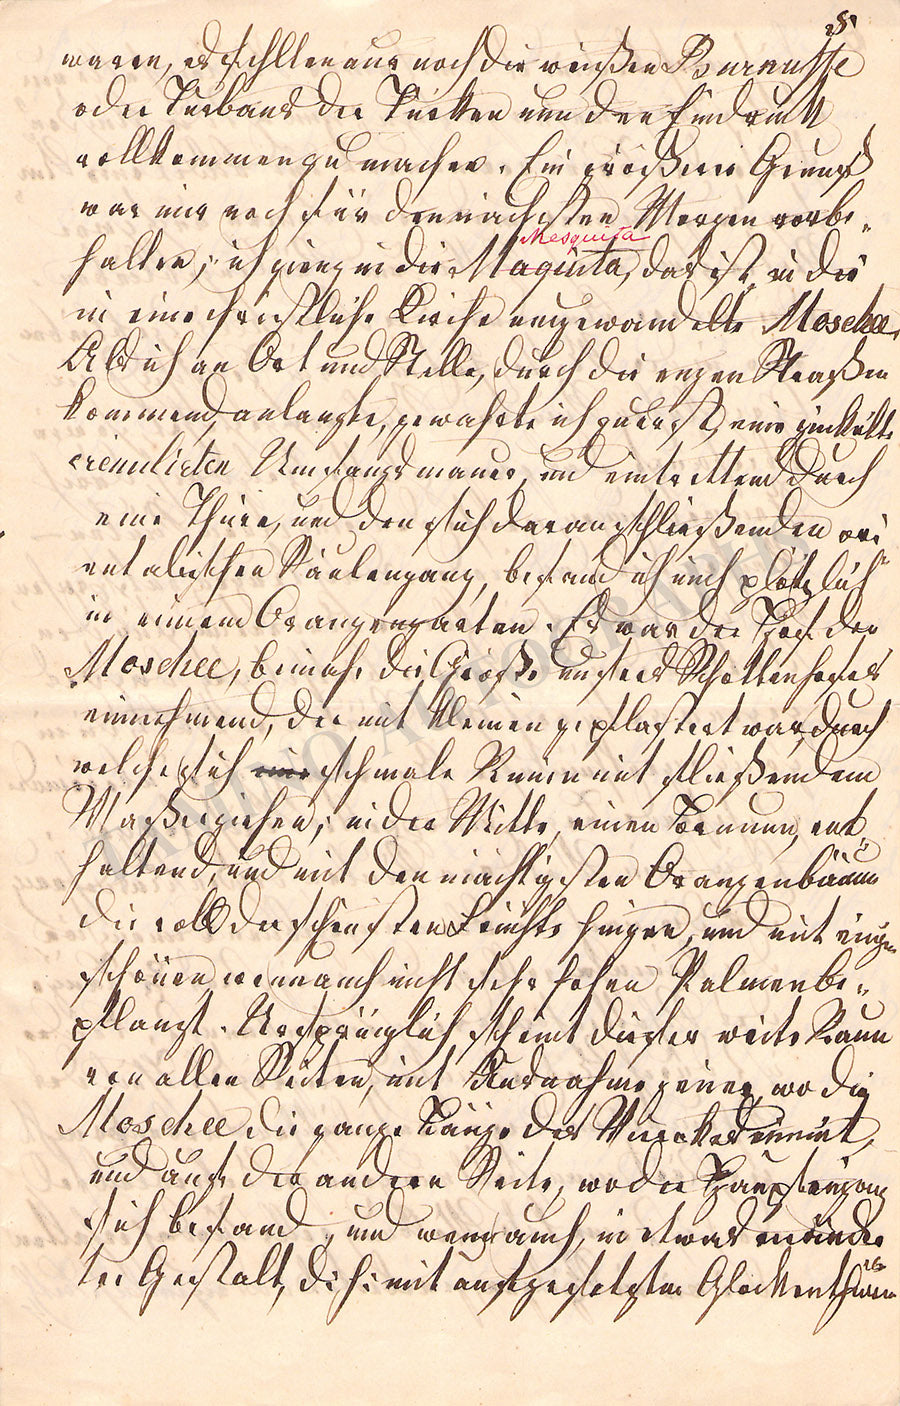 8
waren, es fehlten nur noch die weißen Burnusse
oder Turbans der Türken um den Eindruck
vollkommen zu machen. Ein größerer Genuß
war mir noch für den nächsten Morgen vorbe-
Mesquita
halten; ich gieng in die Maquita, das ist, in die
in eine christliche Kirche umgewandelte Moschee.
Als ich an Ort und Stelle, durch die engen Straßen
kommend, anlangte, gewahrte ich zuerst, eine
crenulirten Umfangsmauer, und eintrettend durch
eine Thüre, und den sich daranschließenden ori-
entalischen Säulengang, befand ich mich plötzlich
in einem Orangengarten. Es war der Hof der
Moschee, beinahe die Größe unseres Schottenhofes
einnehmend, der mit kleinen gepflastert war, durch
welche sich schmale Rinnen mit fließendem
Waßer ziehen; in der Mitte, einen Brunnen, ent-
haltend, und mit den mächtigsten Orangenbäumen
die voll der schönsten Früchte hingen, und mit einigen
schönen wenn auch nicht sehr hohen Palmen be-
pflanzt. Ursprünglich scheint dieser weite Raum
von allen Seiten, mit Ausnahme jener, wo die
Moschee die ganze Länge des Viereckes einnimt,
und auf der andern Seite, wo der Haupteingang
sich befand, und wenn auch, in etwas veränder-
ter Gestalt, d. h. mit aufgesetztem Glockenthurm
TRHENO AUTOGRAPH